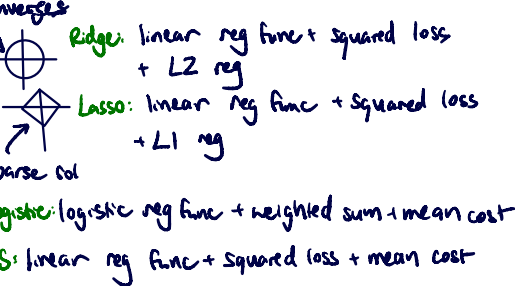 nverges
Ridge: linear reg func + squared loss
+ L2 reg
Lasso: linear reg func + squared loss
+ L1 reg
parse sol
ogistic: logistic reg func + weighted sum + mean cost
S: linear reg func + squared loss + mean cost